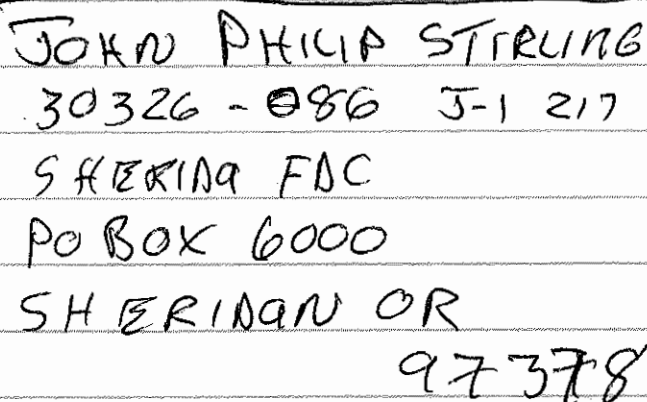 JOHN PHILIP STIRLING
30326-086 J-1 217
SHERIDA FDC
PO BOX 6000
SHERIDAN OR
97378